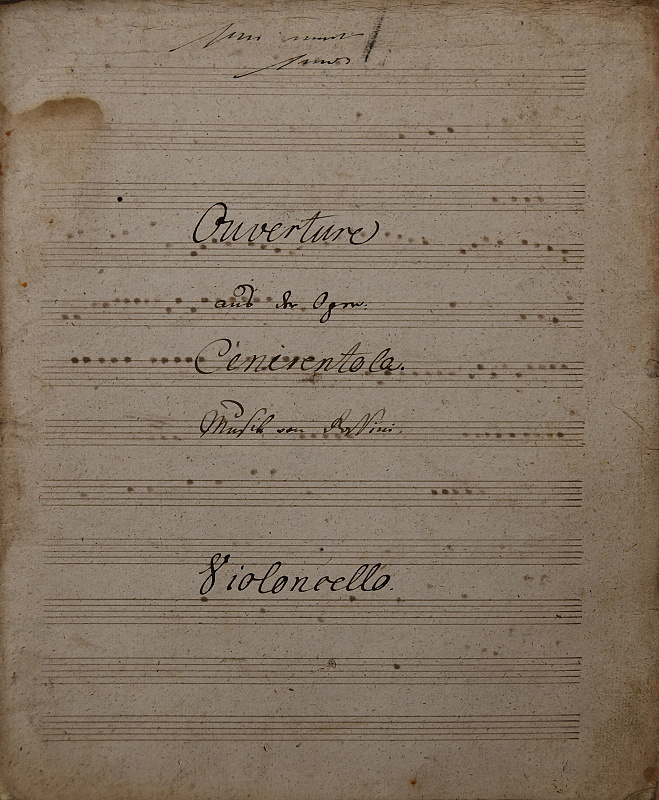 Ouverture
aus der Oper.
Cenerentola.
Musik von Rossini.
Violoncello.